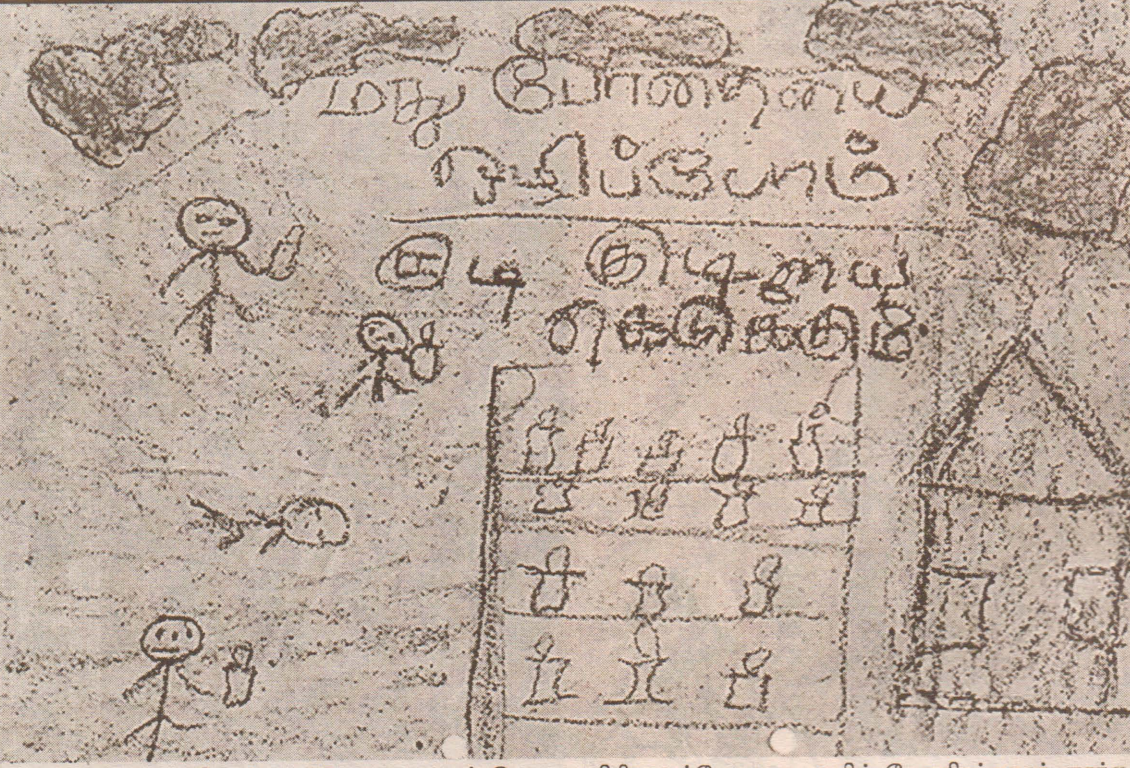 மது போதையை
ஒழிப்போம்
குடி குடியை
கெடுக்கும்